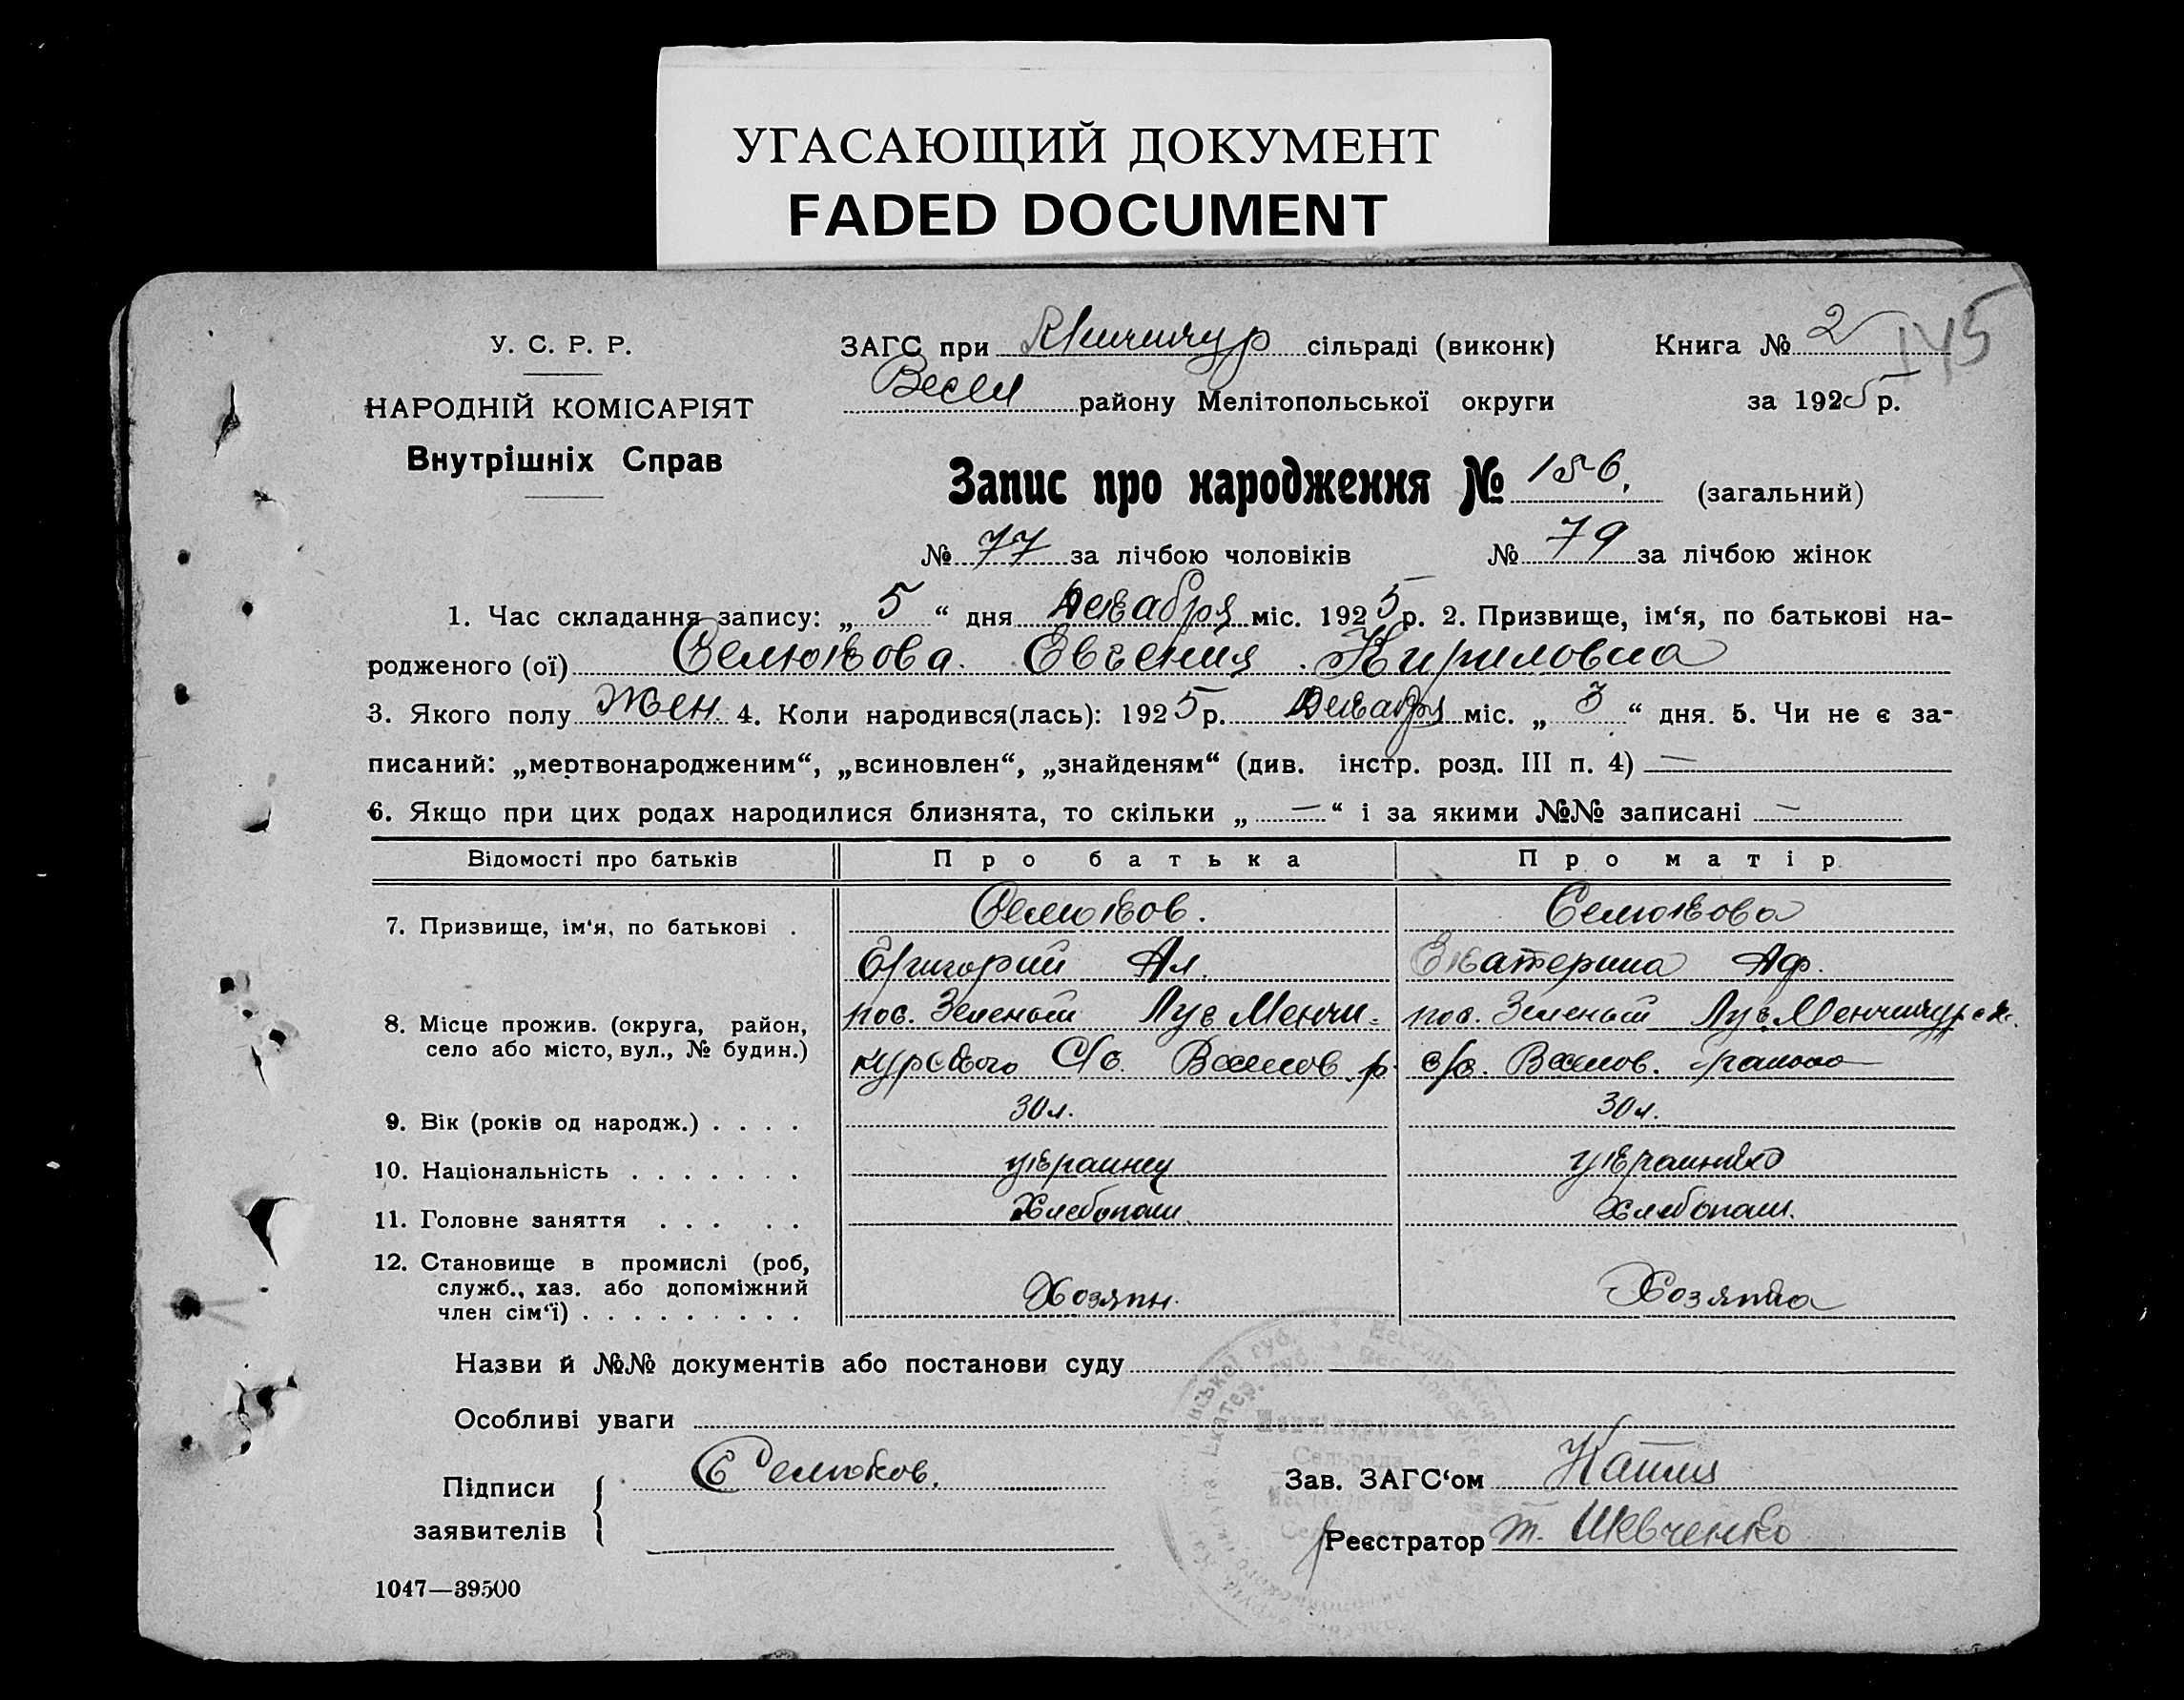 УГАСАЮЩИЙ ДОКУМЕНТ
FADED DOCUMENT
145
У. С. Р. Р.
НАРОДНІЙ КОМІСАРІЯТ
Внутрішніх Справ
ЗАГС при Менчикур сільраді (виконк) Книга № 2
Весел району Мелітопольської округи за 1925 р.
Запис про народження № 156. (загальний)
№ 77 за лічбою чоловіків № 79 за лічбою жінок
1. Час складання запису: „ 5 “ дня Декабря міс. 1925 р. 2. Призвище, ім‘я, по батькові на-
родженого (ої) Селюкова Евгения Кириловна
3. Якого полу Жен. 4. Коли народився(лась): 1925 р. Декабря міс. „ 3 “ дня. 5. Чи не є за-
писаний: „мертвонародженим“, „всиновлен“, „знайденям“ (див. інстр. розд. III п. 4) —
6. Якщо при цих родах народилися близнята, то скільки „ — “ і за якими №№ записані —
Відомості про батьків Про батька Про матір
7. Призвище, ім‘я, по батькові . Селюков. Селюкова
Григорий Ал. Екатерина Аф.
8. Місце прожив. (округа, район, село або місто, вул., № будин.) пос. Зеленый Луг Менчи- пос. Зеленый Луг Менчикурск.
курского С/с. Веселов. р. с/с. Веселов. района
9. Вік (років од народж.) . . . . 30 л. 30 л.
10. Національність . . . . . . . украинец украинка
11. Головне заняття . . . . . Хлебопаш. Хлебопаш.
12. Становище в промислі (роб,
служб., хаз. або допоміжний
член сім‘ї) . . . . . . . . . Хозяин. Хозяйка
Назви й №№ документів або постанови суду
Особливі уваги
Підписи
заявителів
Селюков.
Зав. ЗАГС‘ом
Реєстратор т. Шевченко
1047—39500